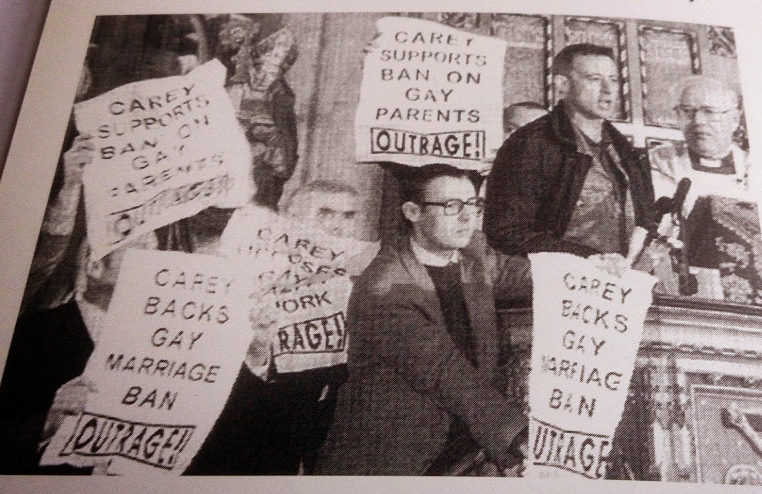 CAREY
SUPPORTS
BAN ON
GAY
PARENTS
OUTRAGE!
CAREY
SUPPORTS
BAN ON
GAY
PARENTS
OUTRAGE!
CAREY
GAY
RAGE!
CAREY
BACKS
GAY
MARRIAGE
BAN
OUTRAGE!
CAREY
BACKS
GAY
MARRIAGE
BAN
UTRAGE